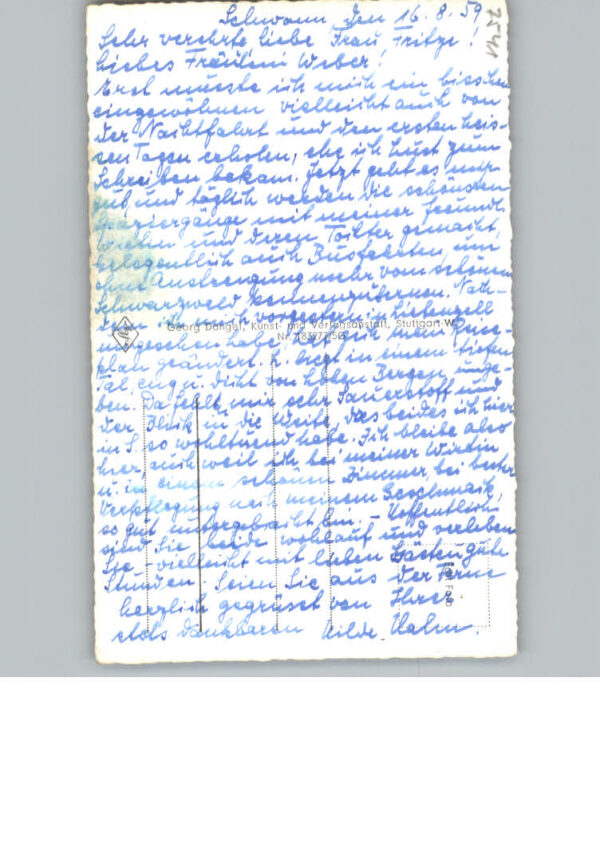 Schwann, den 16.8.59
7541
Sehr verehrte liebe Frau Fritze!
Liebes Fräulein Weber!
Erst musste ich mich ein bisschen
eingewöhnen vielleicht auch von
der Nachtfahrt und den ersten heis-
sen Tagen erholen, ehe ich Lust zum
Schreiben bekam. Jetzt geht es mir
gut und täglich werden die schönsten
Spaziergänge mit meiner freundl.
Wirtin und deren Tochter gemacht,
gelegentlich auch Busfahrten, um
ohne Anstrengung mehr vom schönen
Schwarzwald kennenzulernen. Nach-
dem ich mich vorgestern in Liebenzell
Georg Dangel, Kunst- und Verlagsanstalt, Stuttgart-W
umgesehen habe, hab ich mein Reise-
plan geändert. L. liegt in einem tiefen
Tal, eng u. dicht von hohen Bergen umge-
ben. Da fehlt mir sehr Sauerstoff und
der Blick in die Weite, das beides ich hier
in S. so wohltuend habe. Ich bleibe also
hier, auch weil ich bei meiner Wirtin
u. in einem schönen Zimmer, bei bester
Verpflegung nach meinem Geschmack,
so gut untergebracht bin. – Hoffentlich
sind Sie beide wohlauf und verleben
Sie – vielleicht mit lieben Gästen gute
Stunden. Seien Sie aus der Ferne
herzlich gegrüsst von Ihrer
stets dankbaren Hilde Hahn.